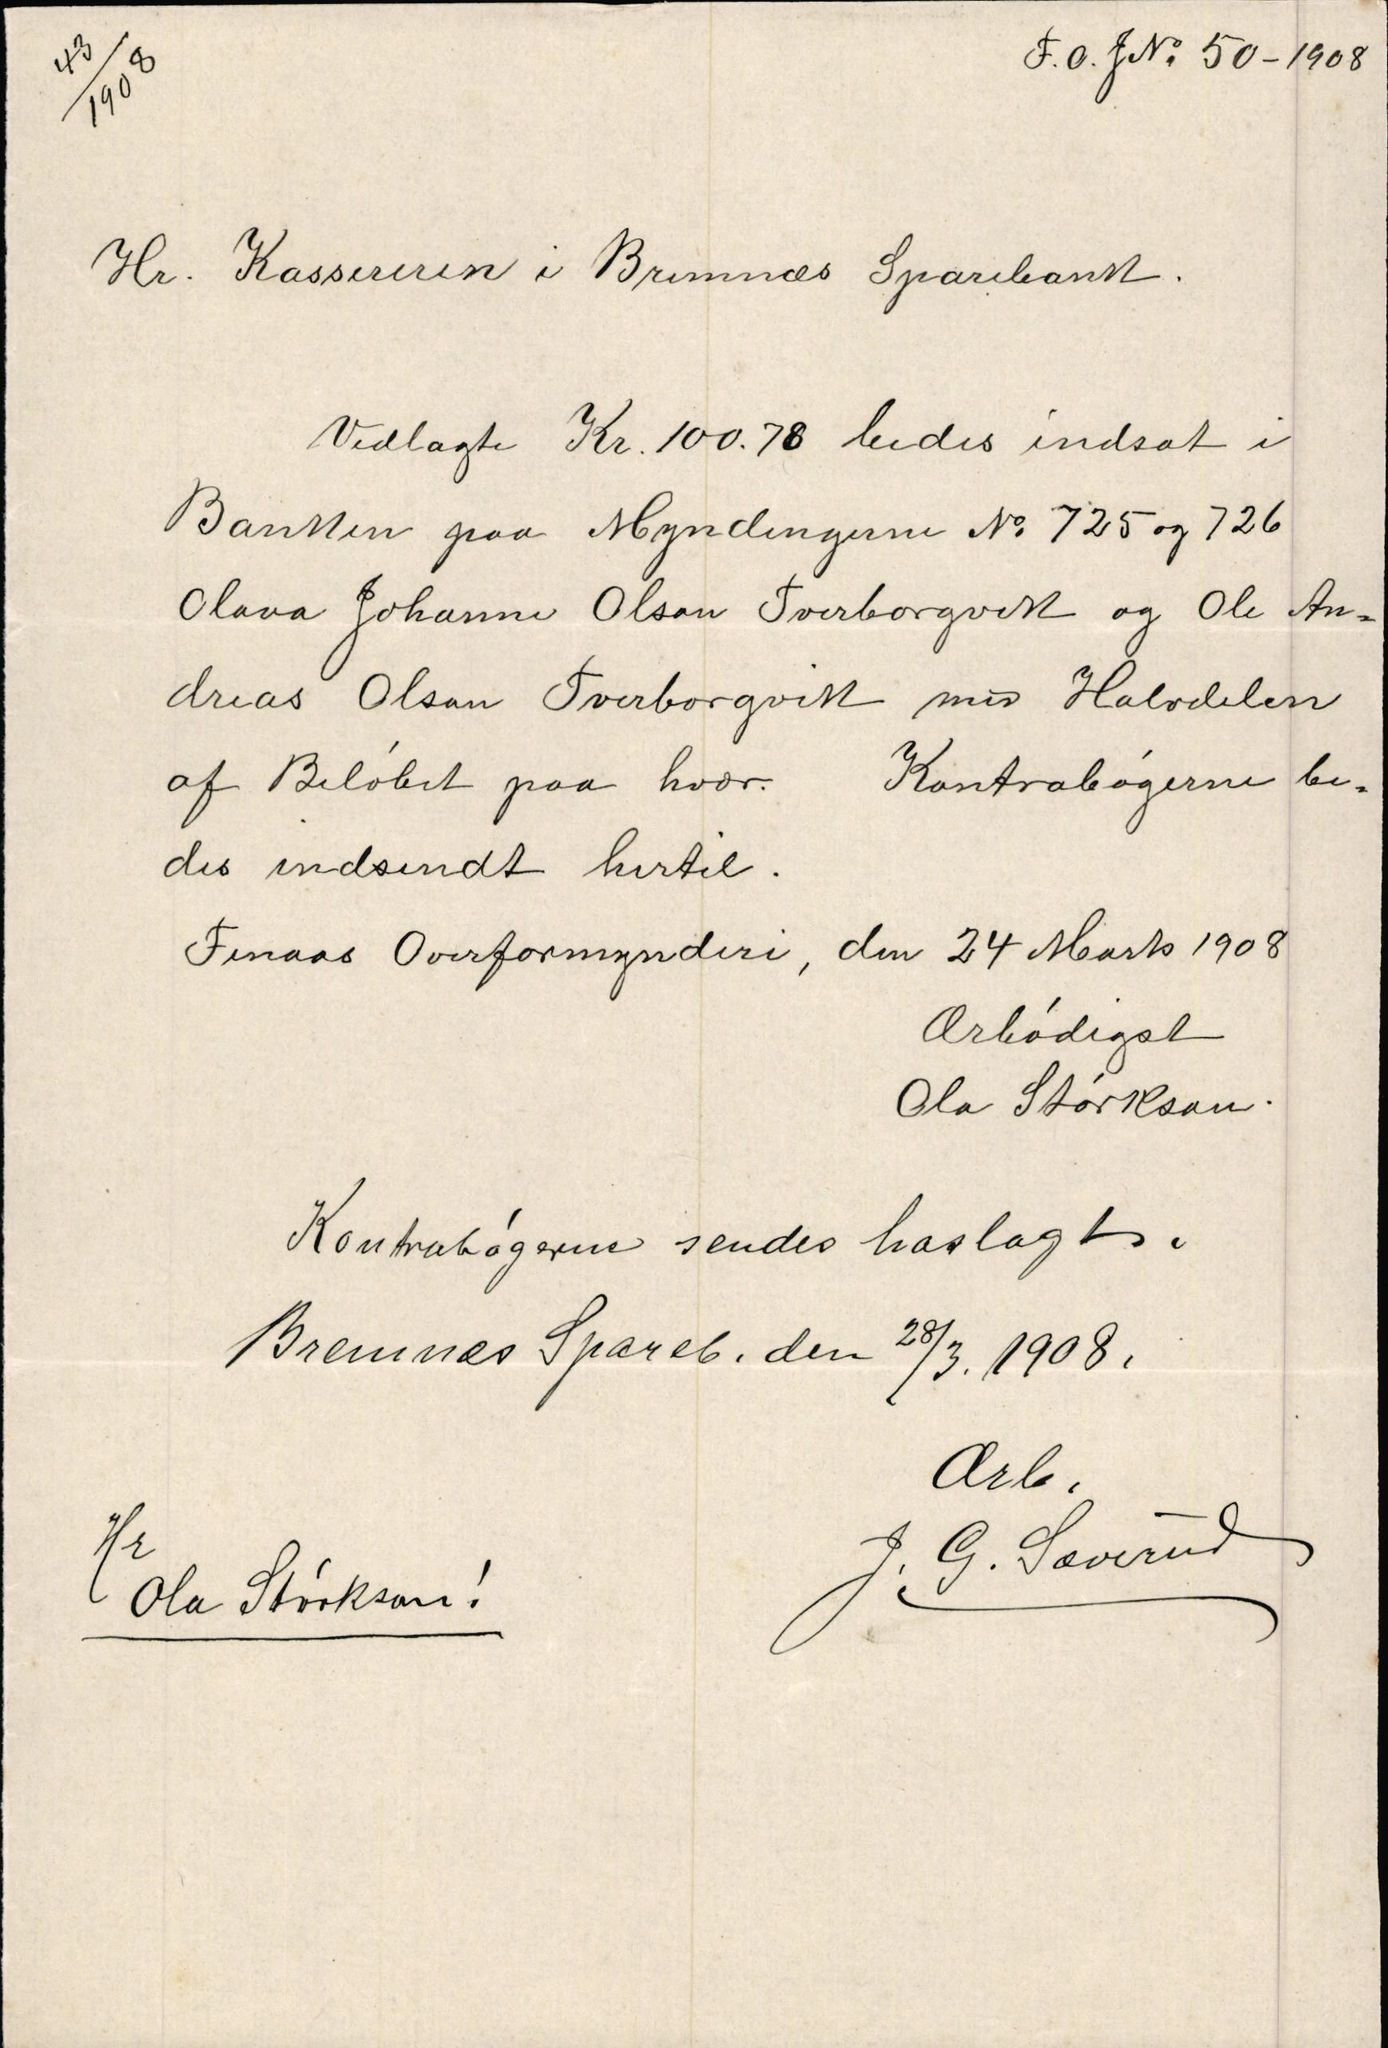 43/1908
F.O.J№ 50-1908
Hr. Kassereren i Bremnæs Sparebank.
Vedlagte Kr. 100.78 bedes indsat i
Banken paa Myndlingerne № 725 og 726
Olava Johanne Olson Tverborgvik og Ole An-
dreas Olson Tverborgvik med Halvdelen
af Beløbet paa hver. Kontrabøgerne be-
des indsendt hertil.
Finaas Overformynderi, den 24 Marts 1908
Ærbødigst
Ola Størkson.
Kontrabøgerne sendes hoslagt.
Bremnæs Spareb. den 28/3. 1908.
Ærb.
J. G. Sæverud
Hr
Ola Størkson!